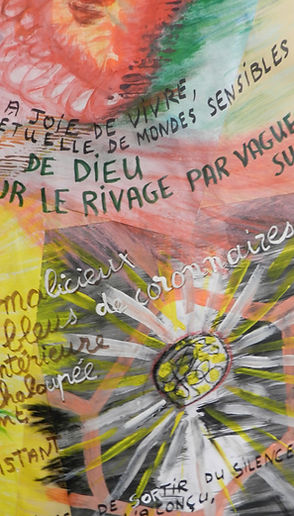 A JOIE DE VIVRE,
ETUELLE DE MONDES SENSIBLES
DE DIEU
UR LE RIVAGE PAR VAGUE
SU
malicieux
bleus de coronnaires
ntérieure
haloupée
nt
ISTANT
DE SORTIR DU SILENCE
CONÇU,